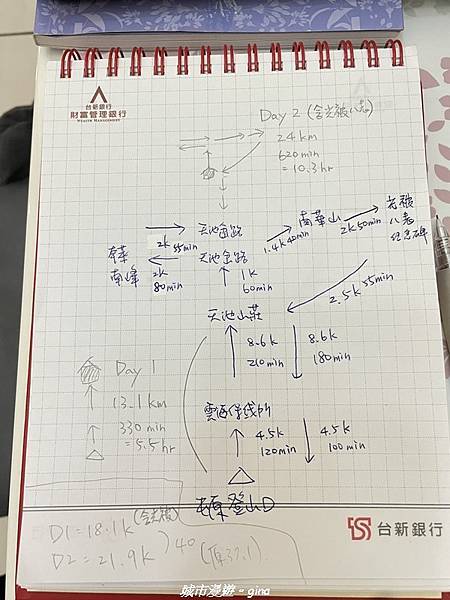 台新銀行
財富管理銀行
WEALTH MANAGEMENT
Day 2 (含光被八表)
24 km
620 min
= 10.3 hr
奇萊
南峰
2k 55min
2k
80min
天池岔路
天池岔路
1.4k 40min
南華山
2k 50min
光被
八表
紀念碑
1k
60min
2.5k 55min
天池山莊
8.6k
210min
8.6k
180min
Day 1
13.1 km
330 min
= 5.5 hr
雲海保線所
4.5k
120min
4.5k
100min
屯原登山口
D1 = 18.1k (含光被)
D2 = 21.9k
40
(原37.1)
台新銀行
城市漫遊 - gina